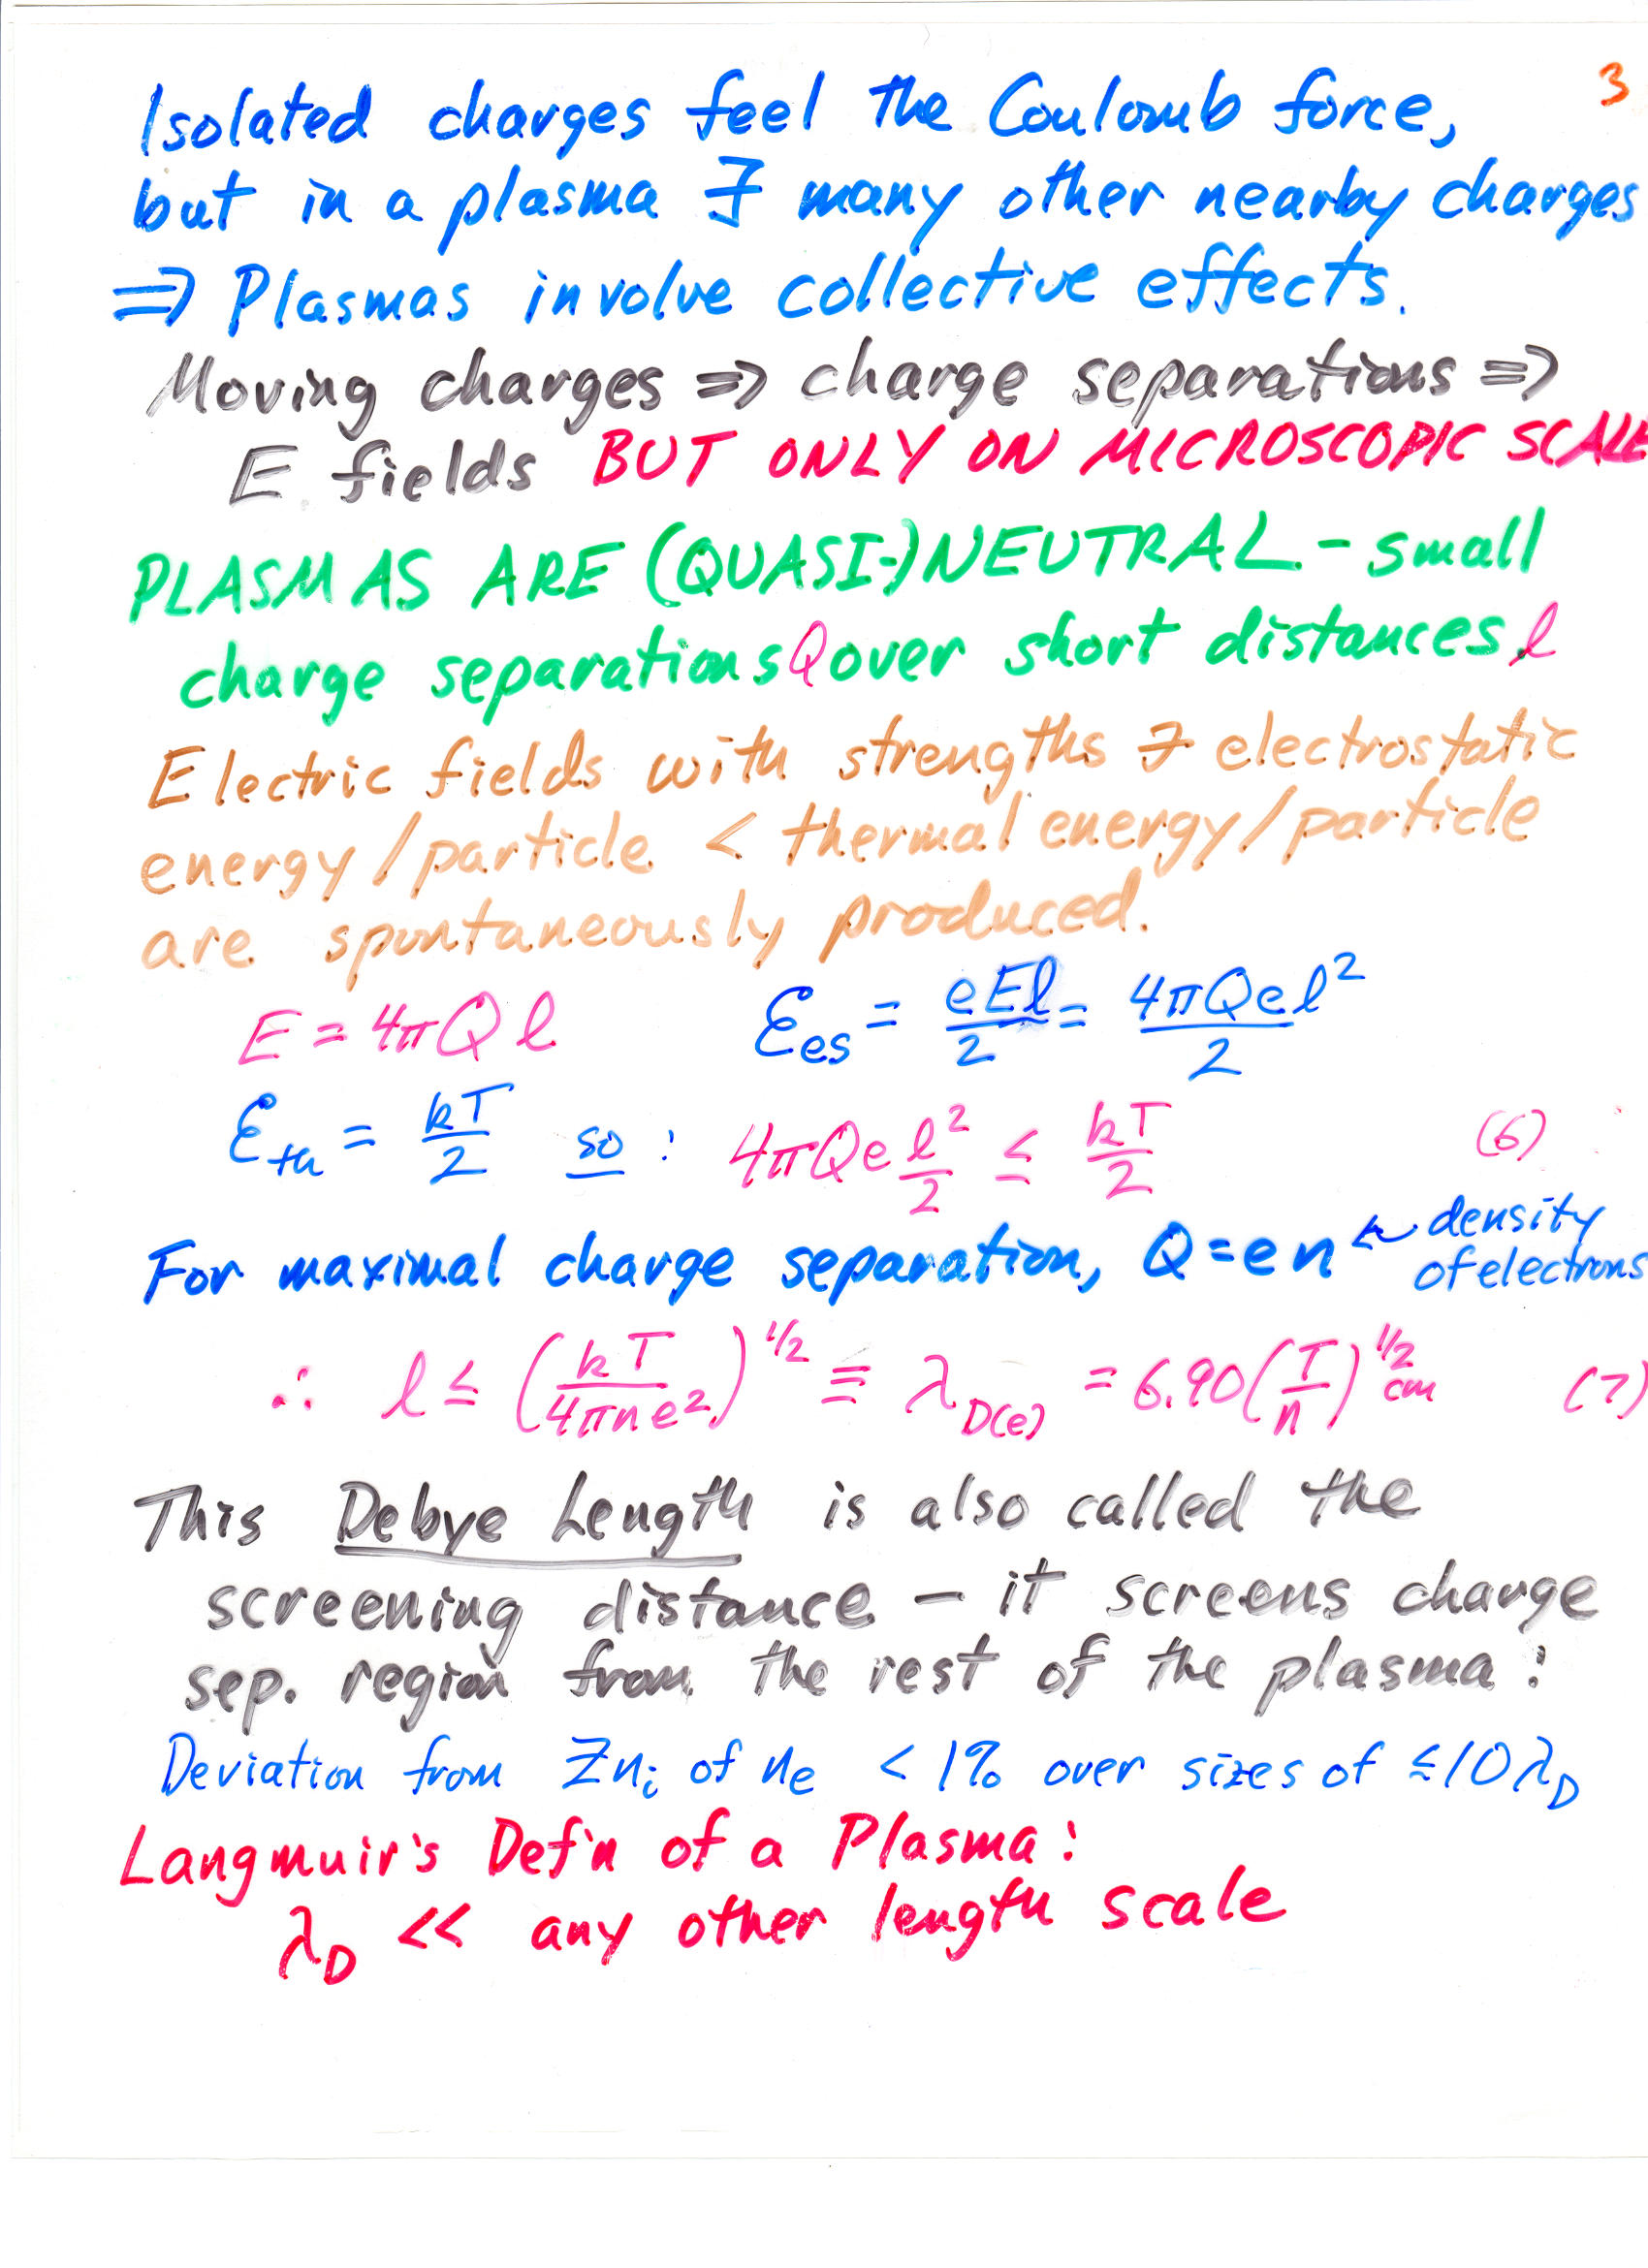 3
Isolated charges feel the Coulomb force,
but in a plasma ∃ many other nearby charges
⇒ Plasmas involve collective effects.
Moving charges ⇒ charge separations ⇒
E fields BUT ONLY ON MICROSCOPIC SCALE
PLASMAS ARE (QUASI-)NEUTRAL - small
charge separations Q over short distances, l
Electric fields with strengths ∋ electrostatic
energy/particle < thermal energy/particle
are spontaneously produced.
E = 4πQl    ℰes = eEl/2 = 4πQel²/2
ℰth = kT/2 so : 4πQe l²/2 ≤ kT/2 (6)
For maximal charge separation, Q = en ← density
of electrons
∴ l ≤ (kT/4πne²)^1/2 ≡ λD(e) = 6.90(T/n)^1/2 cm (7)
This Debye Length is also called the
screening distance - it screens charge
sep. region from the rest of the plasma :
Deviation from Zni of ne < 1% over sizes of ≤10λD
Langmuir's Def'n of a Plasma :
λD << any other length scale